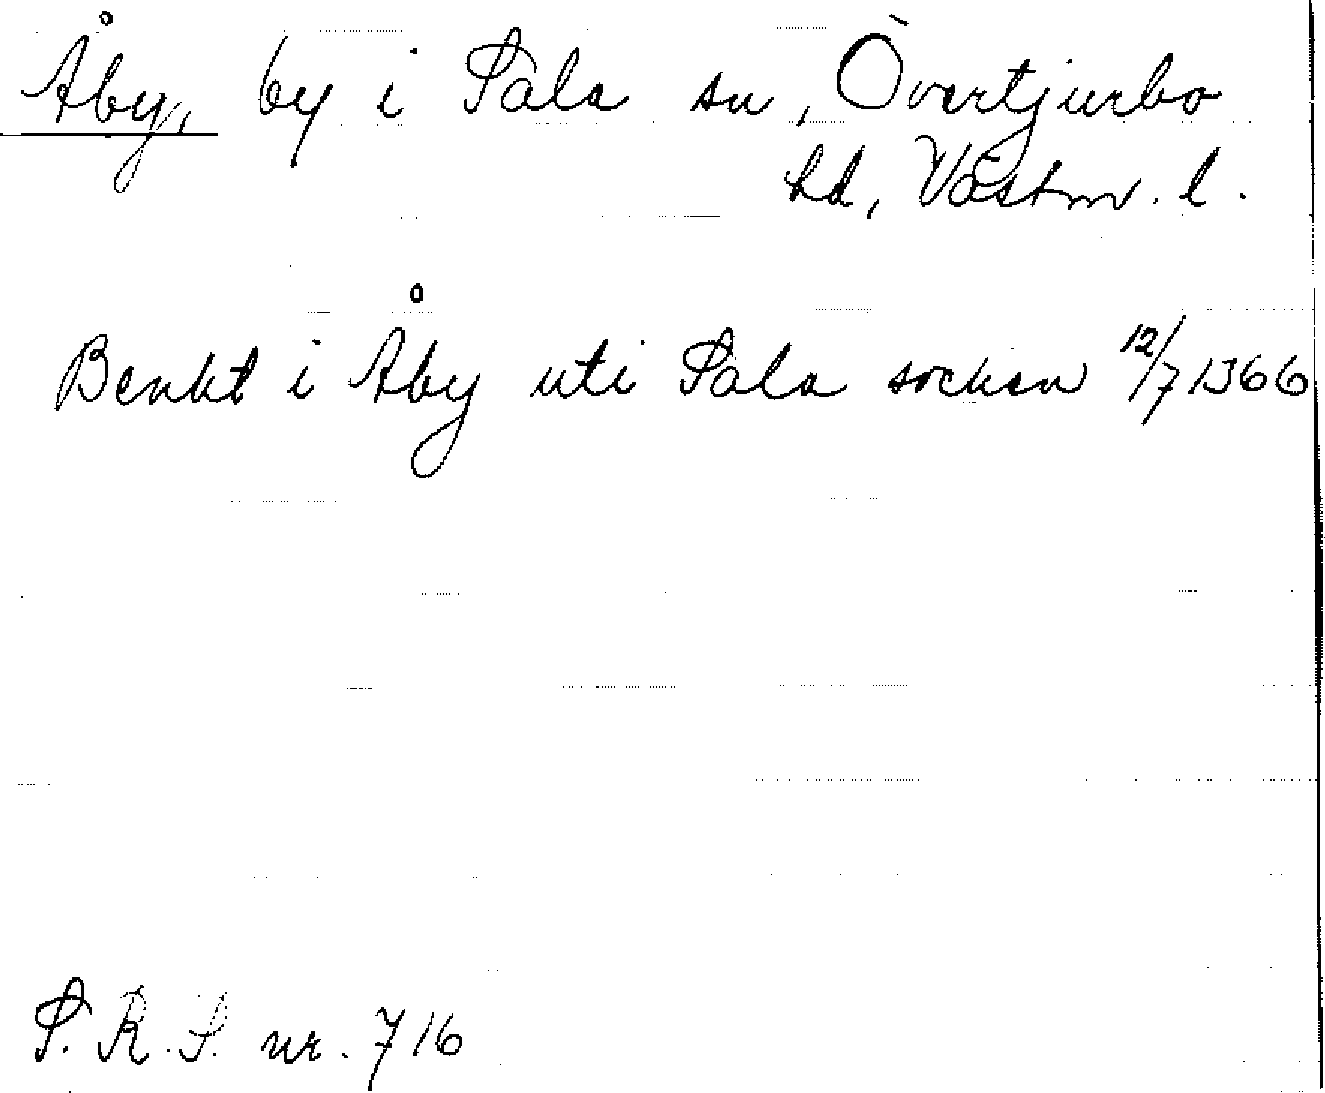 Åby, by i Sala sn, Övertjurbo
hd, Västm. l.
Benkt i Åby uti Sala socken 12/7 1366
S. R. P. nr. 716